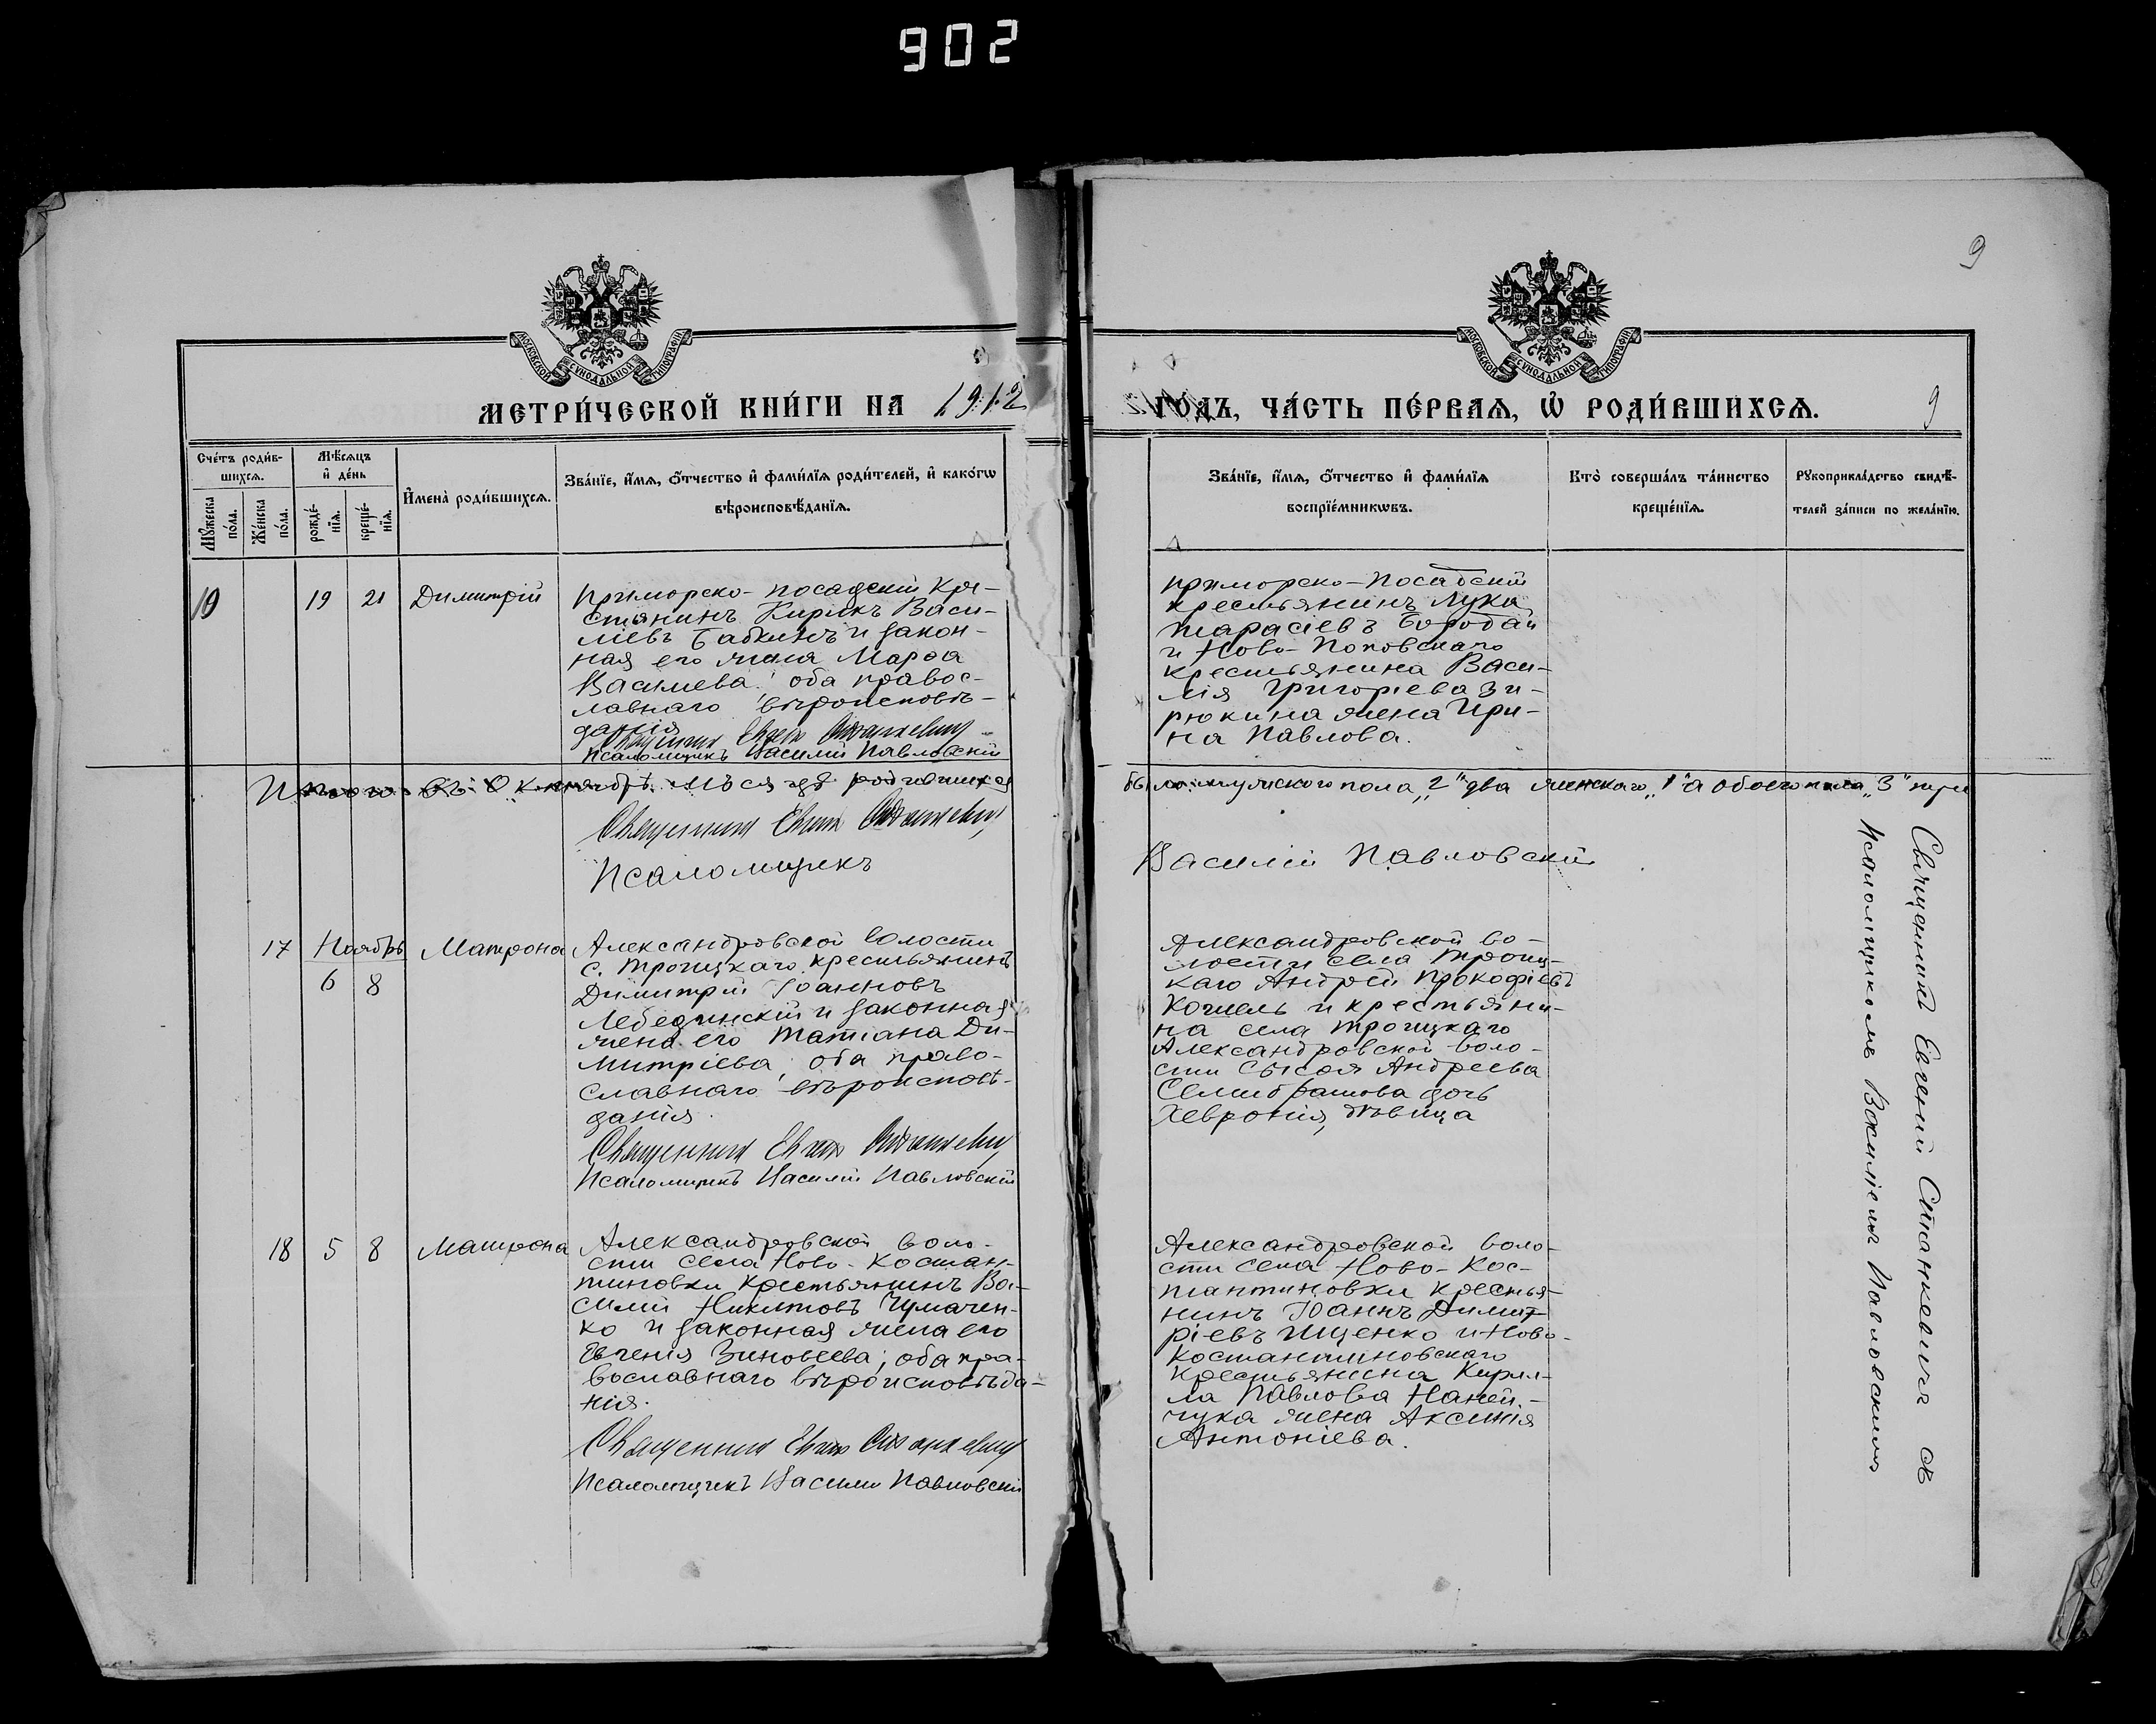 902
9
МОСКОВСКОЙ СѴНОДАЛЬНОЙ ТИПОГРАФІИ
МОСКОВСКОЙ СѴНОДАЛЬНОЙ ТИПОГРАФІИ
МЕТРИ́ЧЕСКОЙ КНИ́ГИ НА 1912
ГОДЪ, ЧА́СТЬ ПЕ́РВАѦ, Ѡ҆ РОДИ́ВШИХСѦ.
9
Сче́тъ роди́в-
шихсѧ.
Мѣ́сѧцъ
и҆ де́нь
Мꙋ́жеска
по́ла.
Же́нска
по́ла.
рожде́-
нїѧ.
креще́-
нїѧ.
И҆мена̀ роди́вшихсѧ.
Зва́нїе, и҆́мѧ, ѻ҆́тчество и҆ фами́лїѧ роди́телей, и҆ како́гѡ
вѣроисповѣ́данїѧ.
Зва́нїе, и҆́мѧ, ѻ҆́тчество и҆ фами́лїѧ
воспрїе́мникѡвъ.
Кто̀ соверша́лъ та́инство
креще́нїѧ.
Рꙋкоприкла́дство свидѣ́-
телей за́писи по жела́нїю.
19 19 21 Димитрій
Приморско-посадскій кре-
стянинъ Кирикъ Васи-
ліевъ Бабкинъ и закон-
ная его жена Марѳа
Василиева; оба правос-
лавнаго вѣроисповѣ-
данія
Священникъ Евгеній Станкевичъ
Псаломщикъ Василій Павловскій
Приморско-Посадскій
крестьянинъ Лука
Тарасіевъ Бородай
и Ново-Поповскаго
крестьянина Васи-
лія Григоріева Зи-
рюкина жена Ири-
на Павлова.
Итого въ Октябрѣ мѣсяцѣ родившихся
было: мужского пола „2" два женскаго „1" а обоего пола „3" три
Священникъ Евгеній Станкевичъ
Псаломщикъ
Василій Павловскій
17 Ноябрь 6 8 Матрона
Александровской волости
с. Троицкаго крестьянинъ
Димитрій Іоанновъ
Лебединскій и законная
жена его Татіана Ди-
митріева; оба право-
славнаго вѣроисповѣ-
данія.
Священникъ Евгеній Станкевичъ
Псаломщикъ Василій Павловскій
Александровской во-
лости села Троиц-
каго Андрей Прокофіевъ
Кошель и крестьяни-
на села Троицкаго
Александровской воло-
сти Сысоя Андреева
Семибратова дочь
Хевронія, дѣвица
18 5 8 Матрона
Александровской воло-
сти села Ново-Костан-
тиновки крестьянинъ Ва-
силій Никитовъ Чумачен-
ко и законная жена его
Евгенія Зиновеева; оба пра-
вославнаго вѣроисповѣда-
нія.
Священникъ Евгеній Станкевичъ
Псаломщикъ Василій Павловскій
Александровской воло-
сти села Ново-Кос-
тантиновки крестья-
нинъ Іоаннъ Димит-
ріевъ Ищенко и Ново-
Костантиновскаго
крестьянина Кирил-
ла Павлова Наней-
чука жена Аксинія
Антоніева.
Священникъ Евгеній Станкевичъ съ
Псаломщикомъ Василіемъ Павловскимъ